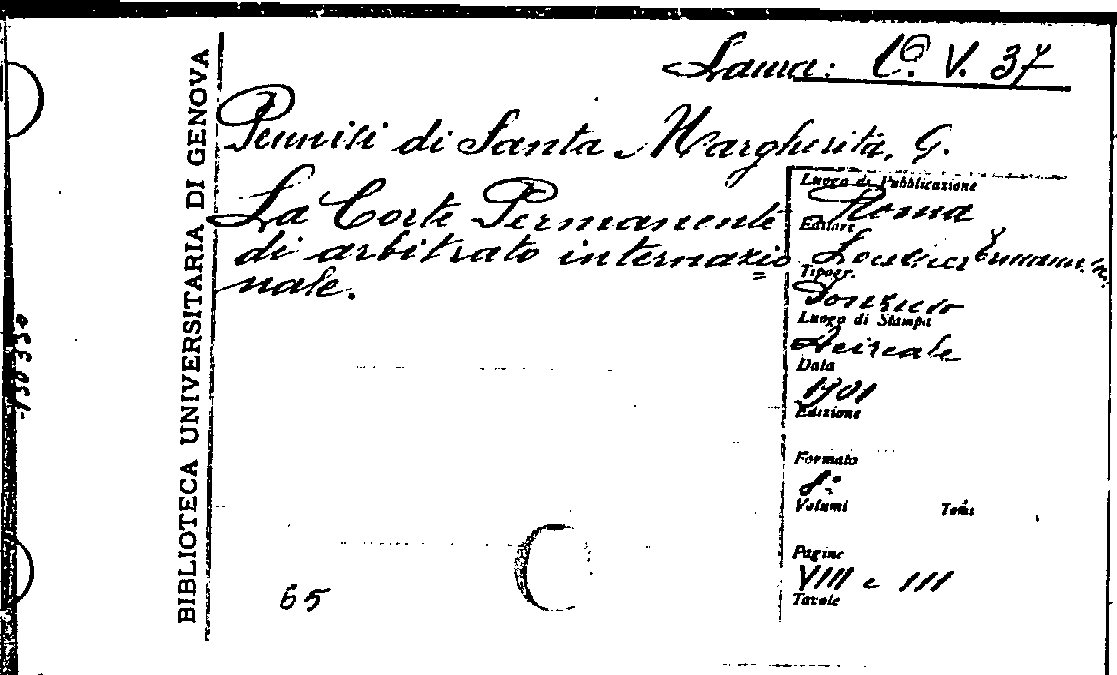 BIBLIOTECA UNIVERSITARIA DI GENOVA
Laura: V. 37
Pennisi di Santa Margherita, G.
La Corte Permanente
di arbitrato internazio=
nale.
Luogo di Pubblicazione
Roma
Editore
Loescher Ermanno
Tipogr.
Donzuso
Luogo di Stampa
Acireale
Data
1901
Edizione
Formato
8º
Volumi Tomi
Pagine
VIII e 111
Tavole
65